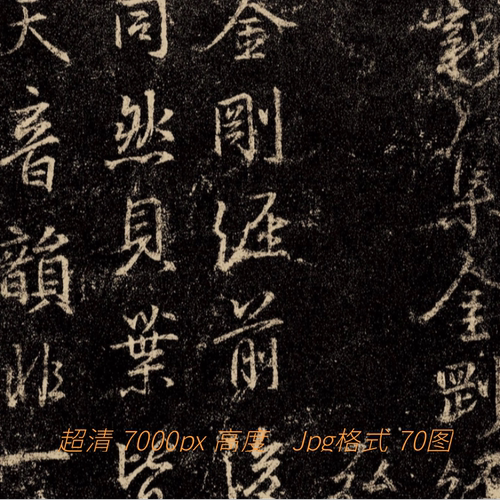 集金剛經
金剛經前
同然貝葉皆
天音韻非一
超清 7000px 高度 Jpg格式 70图